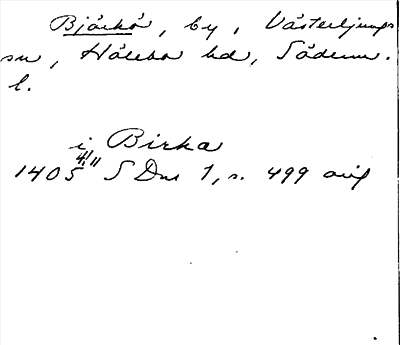 Björkö, by, Västerljungs
sn, Hölebo hd, Söderm.
l.
i Birka
1405 4/11 SDns 1, s. 499 avig